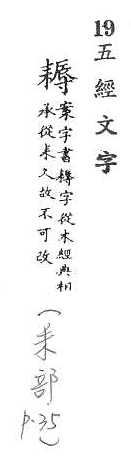 19 五經文字
耨 案字書槈字從木經典相
承從耒久故不可改
(耒部 p.35)